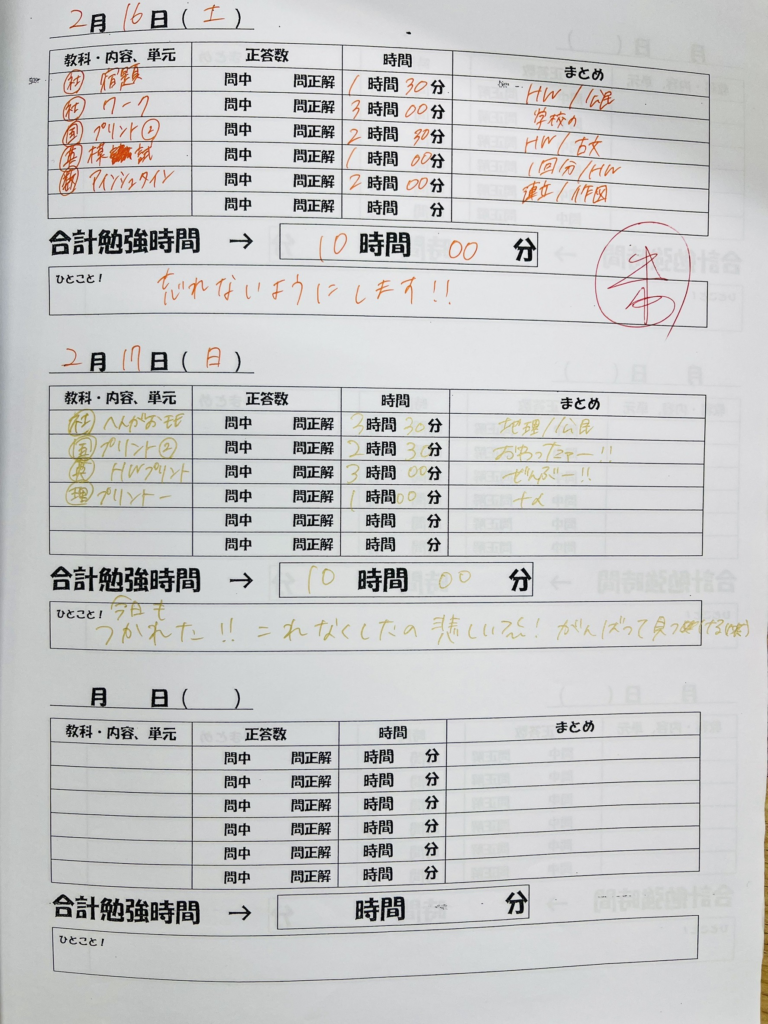 2月 16日( 土 )
教科・内容、単元 正答数 時間 まとめ
社 宿題 問中 問正解 1時間 30分 HW/公民
社 ワーク 問中 問正解 3時間 00分 学校の
国 プリント② 問中 問正解 2時間 30分 HW/古文
英 模試 問中 問正解 1時間 00分 1回分/HW
数 アインシュタイン 問中 問正解 2時間 00分 連立/作図
問中 問正解 時間 分
合計勉強時間 → 10時間 00分
ひとこと! 忘れないようにします!!
2月 17日( 日 )
教科・内容、単元 正答数 時間 まとめ
社 へんがお 問中 問正解 3時間 30分 地理/公民
国 プリント② 問中 問正解 2時間 30分 おわったァー!!
英 HWプリント 問中 問正解 3時間 00分 ぜんぶー!!
理 プリントー 問中 問正解 1時間 00分
問中 問正解 時間 分
問中 問正解 時間 分
合計勉強時間 → 10時間 00分
ひとこと! 今日も
つかれた!! これなくしたの悲しい! がんばって見つける(笑)
月 日( )
教科・内容、単元 正答数 時間 まとめ
問中 問正解 時間 分
問中 問正解 時間 分
問中 問正解 時間 分
問中 問正解 時間 分
問中 問正解 時間 分
問中 問正解 時間 分
合計勉強時間 → 時間 分
ひとこと!